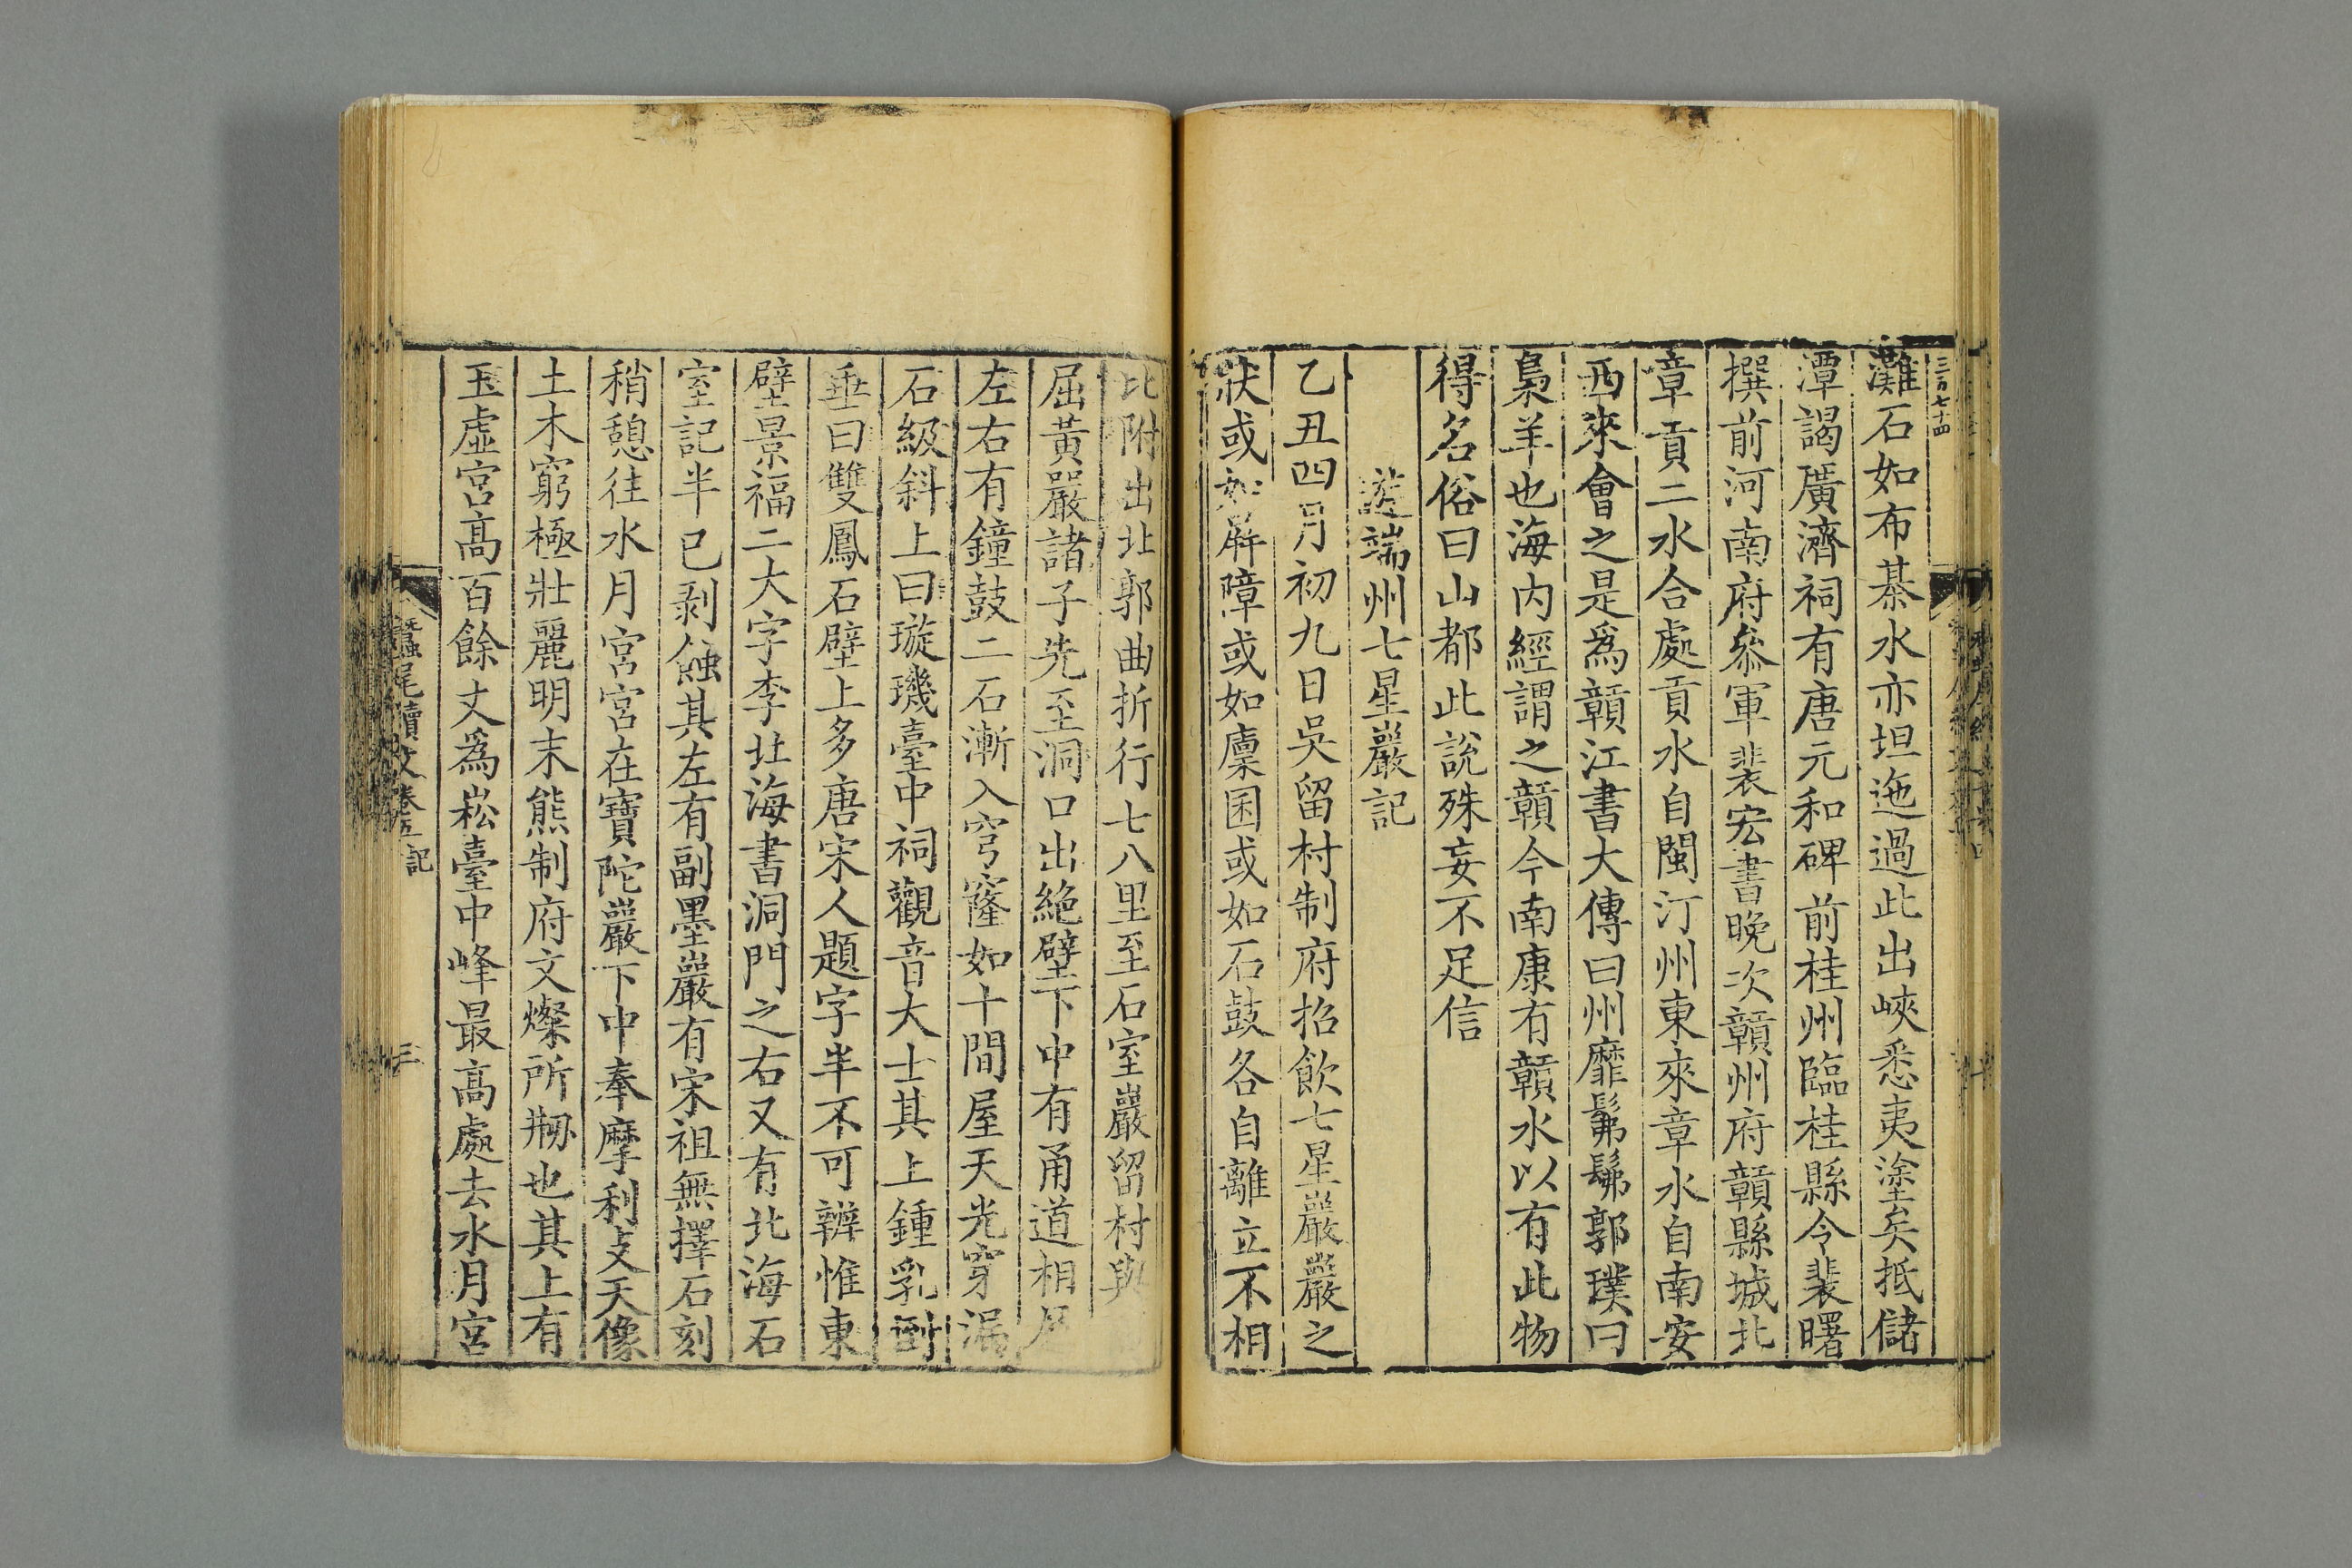 三百七十四
灘石如布棊水亦坦迤過此出峽悉夷塗矣抵儲
潭謁廣濟祠有唐元和碑前桂州臨桂縣令裴曙
撰前河南府叅軍裴宏書晚次贛州府贛縣城北
章貢二水合處貢水自閩汀州東來章水自南安
西來會之是爲贛江書大傳曰州靡髴髴郭璞曰
梟羊也海內經謂之贛今南康有贛水以有此物
得名俗曰山都此說殊妄不足信
遊端州七星巖記
乙丑四月初九日吳留村制府招飲七星巖巖之
狀或如屏障或如廩囷或如石鼓各自離立不相
比附出北郭曲折行七八里至石室巖留村與
屈黃嚴諸子先至洞口出絕壁下中有甬道相
左右有鐘鼓二石漸入穹窿如十間屋天光穿漏
石級斜上曰璇璣臺中祠觀音大士其上鍾乳倒
垂曰雙鳳石壁上多唐宋人題字半不可辨惟東
壁景福二大字李北海書洞門之右又有北海石
室記半已剥蝕其左有副墨巖有宋祖無擇石刻
稍憩往水月宮宮在寶陀巖下中奉摩利支天像
土木窮極壯麗明末熊制府文燦所剏也其上有
玉虛宮高百餘丈爲崧臺中峰最高處去水月宮
蠶尾續文卷五 記 三